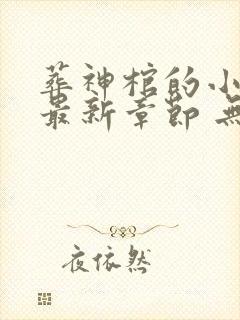 葬神棺的小
最新章节 无
夜依然